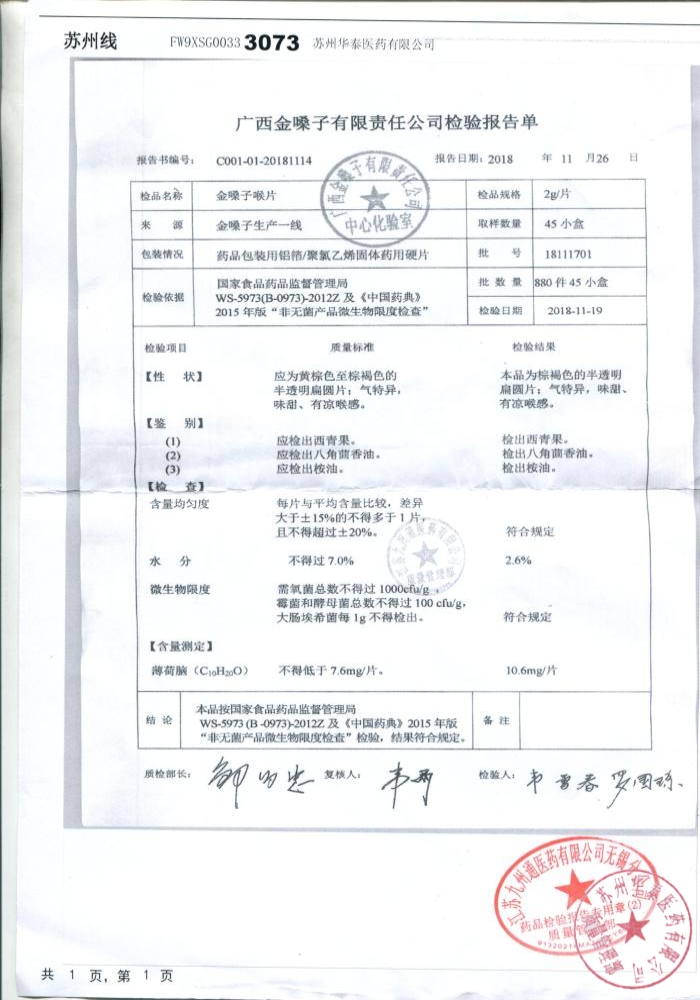 苏州线 FW9XSG0033 3073 苏州华泰医药有限公司
广西金嗓子有限责任公司检验报告单
报告书编号: C001-01-20181114 报告日期: 2018 年 11 月26 日
广西金嗓子有限责任公司
中心化验室
检品名称 金嗓子喉片 检品规格 2g/片
来 源 金嗓子生产一线 取样数量 45 小盒
包装情况 药品包装用铝箔/聚氯乙烯固体药用硬片 批 号 18111701
检验依据 国家食品药品监督管理局 批 数 量 880 件 45 小盒
WS-5973(B-0973)-2012Z 及《中国药典》
2015 年版“非无菌产品微生物限度检查” 检验日期 2018-11-19
检验项目 质量标准 检验结果
【性 状】 应为黄棕色至棕褐色的 本品为棕褐色的半透明
半透明扁圆片；气特异， 扁圆片；气特异，味甜、
味甜、有凉喉感。 有凉喉感。
【鉴 别】
(1) 应检出西青果。 检出西青果。
(2) 应检出八角茴香油。 检出八角茴香油。
(3) 应检出桉油。 检出桉油。
【检 查】
含量均匀度 每片与平均含量比较，差异
大于±15%的不得多于 1 片，
且不得超过±20%。 符合规定
水 分 不得过 7.0% 2.6%
微生物限度 需氧菌总数不得过 1000cfu/g，
霉菌和酵母菌总数不得过 100 cfu/g，
大肠埃希菌每 1g 不得检出。 符合规定
【含量测定】
薄荷脑（C₁₀H₂₀O） 不得低于 7.6mg/片。 10.6mg/片
结 论 本品按国家食品药品监督管理局 备 注
WS-5973 (B -0973)-2012Z 及《中国药典》2015 年版
“非无菌产品微生物限度检查”检验，结果符合规定。
质检部长: 复核人: 检验人:
江苏九州通医药有限公司无锡分
药品检验报告专用章(2)
质量管
苏州华泰医药有限公司
共 1 页, 第 1 页